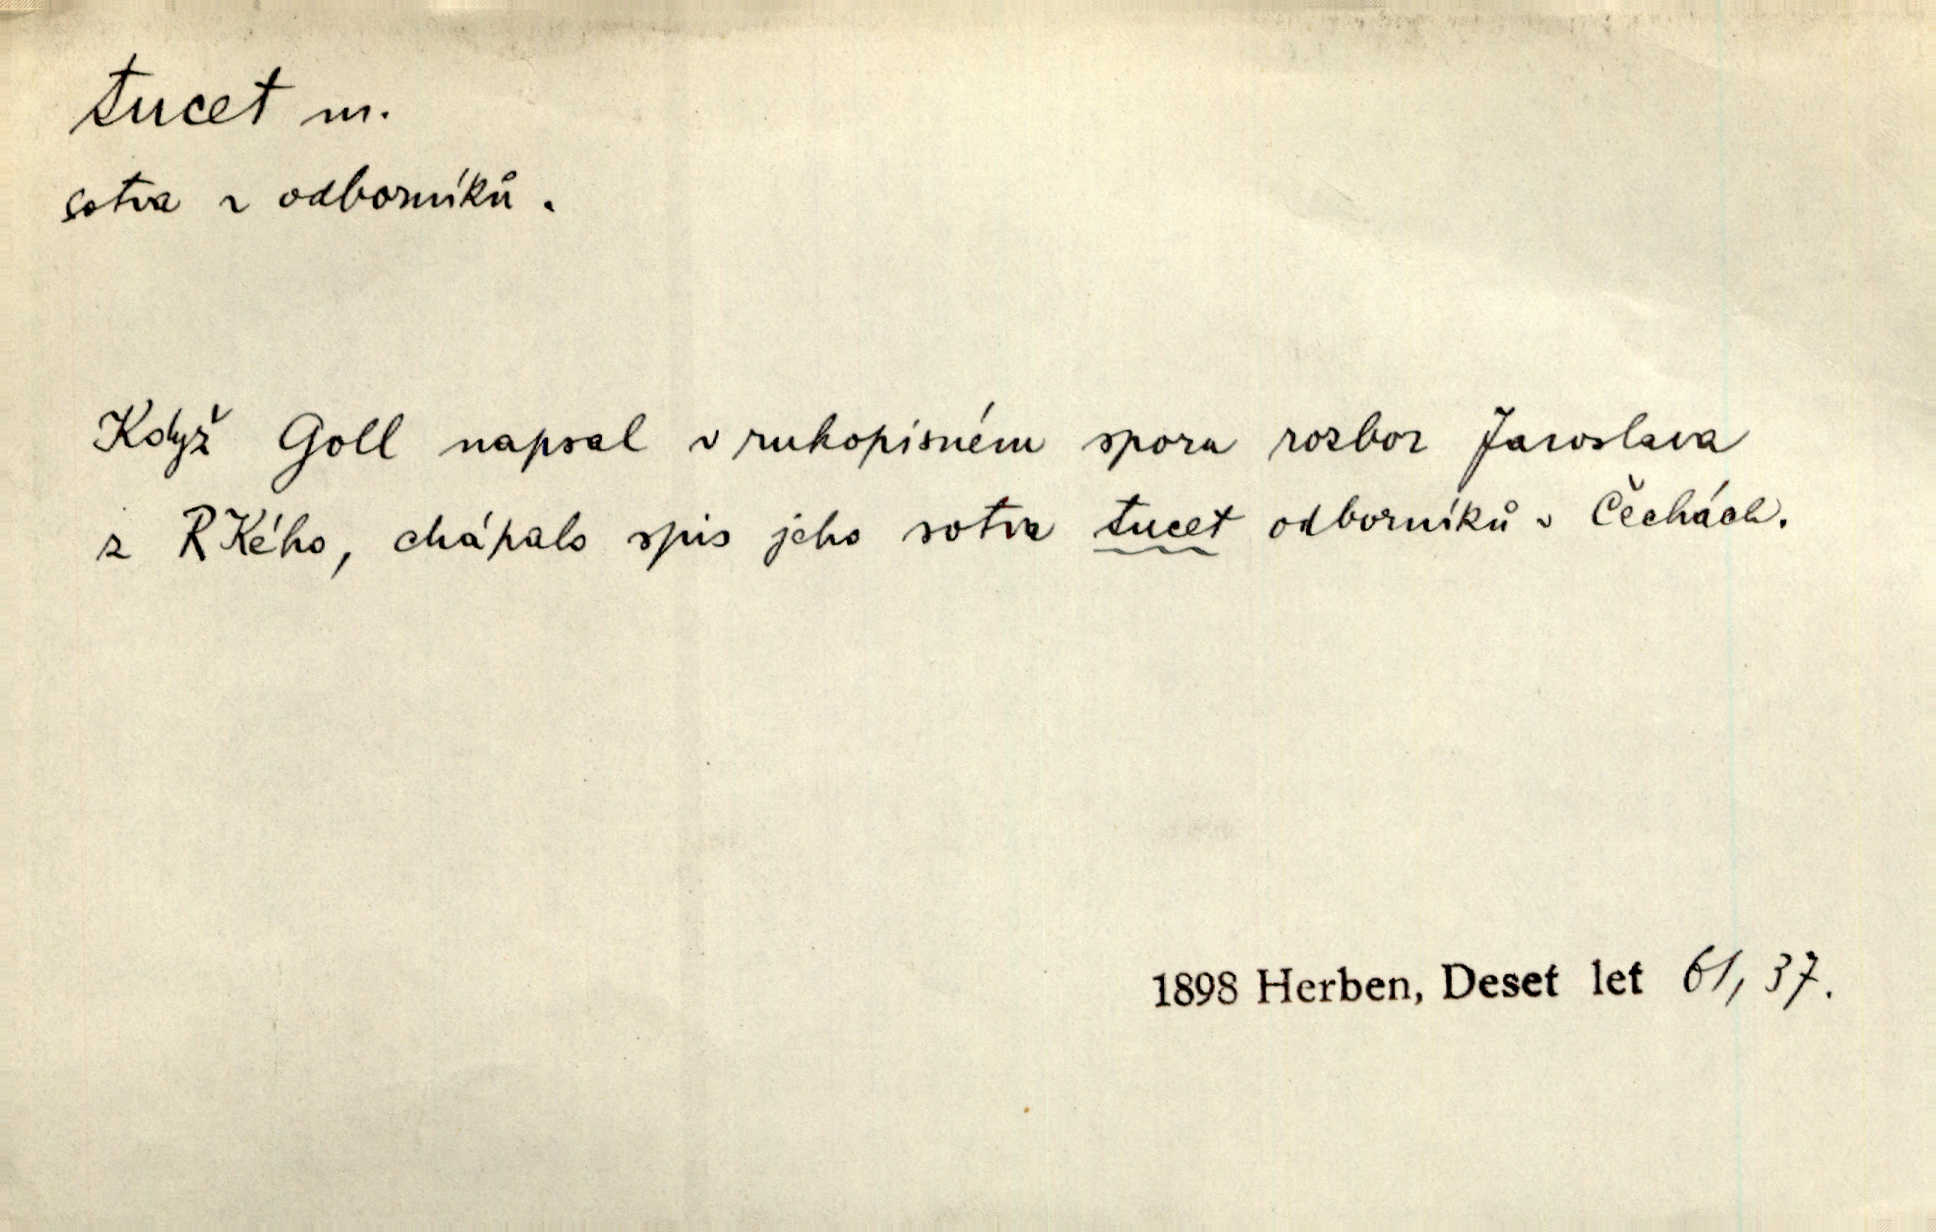 tucet m.
sotva ~ odborníků.
Když Goll napsal v rukopisném sporu rozbor Jaroslava
z RKého, chápalo spis jeho sotva tucet odborníků v Čechách.
1898 Herben, Deset let 61, 37.